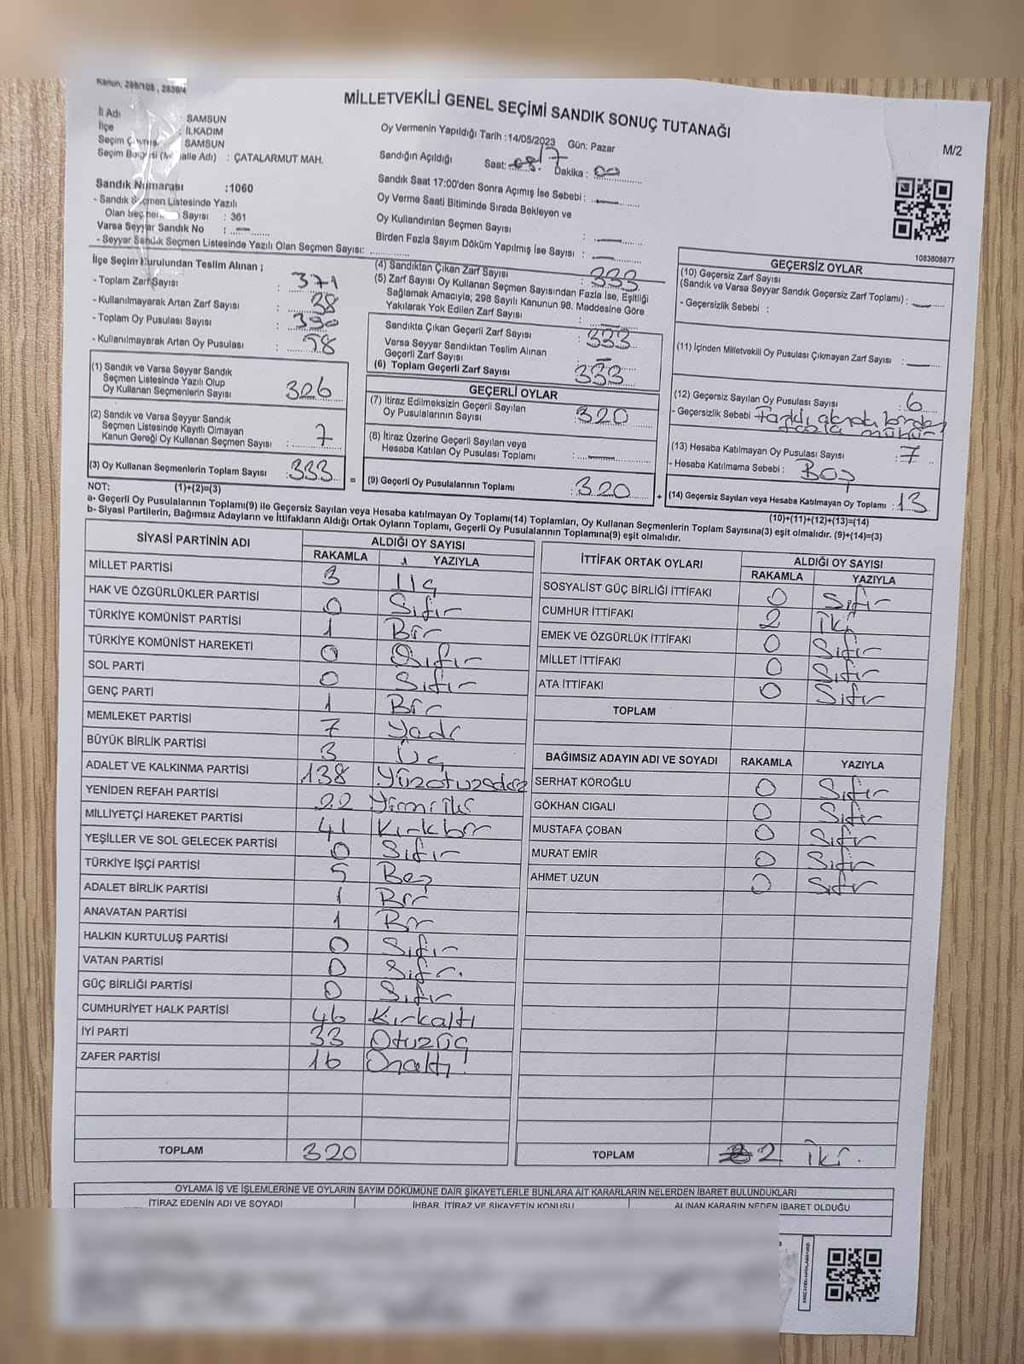 Kanun, 298/105 , 2839/4
MİLLETVEKİLİ GENEL SEÇİMİ SANDIK SONUÇ TUTANAĞI
M/2
İl Adı SAMSUN
İlçe İLKADIM
Seçim Çevresi SAMSUN
Seçim Bölgesi (Mahalle Adı) : ÇATALARMUT MAH.
Sandık Numarası :1060
- Sandık Seçmen Listesinde Yazılı
Olan Seçmen Sayısı : 361
Varsa Seyyar Sandık No : —
- Seyyar Sandık Seçmen Listesinde Yazılı Olan Seçmen Sayısı:
Oy Vermenin Yapıldığı Tarih :14/05/2023 Gün: Pazar
Sandığın Açıldığı Saat: 17 Dakika : 00
Sandık Saat 17:00'den Sonra Açımış İse Sebebi : —
Oy Verme Saati Bitiminde Sırada Bekleyen ve
Oy Kullandırılan Seçmen Sayısı : —
Birden Fazla Sayım Döküm Yapılmış İse Sayısı : —
1083808877
İlçe Seçim Kurulundan Teslim Alınan ;
- Toplam Zarf Sayısı : 371
- Kullanılmayarak Artan Zarf Sayısı : 38
- Toplam Oy Pusulası Sayısı : 390
- Kullanılmayarak Artan Oy Pusulası : 58
(1) Sandık ve Varsa Seyyar Sandık
Seçmen Listesinde Yazılı Olup
Oy Kullanan Seçmenlerin Sayısı : 326
(2) Sandık ve Varsa Seyyar Sandık
Seçmen Listesinde Kayıtlı Olmayan
Kanun Gereği Oy Kullanan Seçmen Sayısı : 7
(3) Oy Kullanan Seçmenlerin Toplam Sayısı : 333
(4) Sandıktan Çıkan Zarf Sayısı : 333
(5) Zarf Sayısı Oy Kullanan Seçmen Sayısından Fazla İse, Eşitliği
Sağlamak Amacıyla; 298 Sayılı Kanunun 98. Maddesine Göre
Yakılarak Yok Edilen Zarf Sayısı : —
Sandıkta Çıkan Geçerli Zarf Sayısı : 333
Varsa Seyyar Sandıktan Teslim Alınan
Geçerli Zarf Sayısı : —
(6) Toplam Geçerli Zarf Sayısı : 333
GEÇERLİ OYLAR
(7) İtiraz Edilmeksizin Geçerli Sayılan
Oy Pusulalarının Sayısı : 320
(8) İtiraz Üzerine Geçerli Sayılan veya
Hesaba Katılan Oy Pusulası Toplamı : —
= (9) Geçerli Oy Pusulalarının Toplamı : 320
GEÇERSİZ OYLAR
(10) Geçersiz Zarf Sayısı
(Sandık ve Varsa Seyyar Sandık Geçersiz Zarf Toplamı) : —
- Geçersizlik Sebebi :
(11) İçinden Milletvekili Oy Pusulası Çıkmayan Zarf Sayısı : —
(12) Geçersiz Sayılan Oy Pusulası Sayısı : 6
- Geçersizlik Sebebi : birden
fazla mühür
(13) Hesaba Katılmayan Oy Pusulası Sayısı : 7
- Hesaba Katılmama Sebebi : Boş
+ (14) Geçersiz Sayılan veya Hesaba Katılmayan Oy Toplamı : 13
NOT: (1)+(2)=(3)
(10)+(11)+(12)+(13)=(14)
a- Geçerli Oy Pusulalarının Toplamı(9) ile Geçersiz Sayılan veya Hesaba katılmayan Oy Toplamı(14) Toplamları, Oy Kullanan Seçmenlerin Toplam Sayısına(3) eşit olmalıdır. (9)+(14)=(3)
b- Siyasi Partilerin, Bağımsız Adayların ve İttifakların Aldığı Ortak Oyların Toplamı, Geçerli Oy Pusulalarının Toplamına(9) eşit olmalıdır.
SİYASİ PARTİNİN ADI ALDIĞI OY SAYISI
RAKAMLA YAZIYLA
MİLLET PARTİSİ 3 Üç
HAK VE ÖZGÜRLÜKLER PARTİSİ 0 Sıfır
TÜRKİYE KOMÜNİST PARTİSİ 1 Bir
TÜRKİYE KOMÜNİST HAREKETİ 0 Sıfır
SOL PARTİ 0 Sıfır
GENÇ PARTİ 1 Bir
MEMLEKET PARTİSİ 7 Yedi
BÜYÜK BİRLİK PARTİSİ 3 Üç
ADALET VE KALKINMA PARTİSİ 138 Yüzotuzsekiz
YENİDEN REFAH PARTİSİ 22 Yirmiiki
MİLLİYETÇİ HAREKET PARTİSİ 41 Kırkbir
YEŞİLLER VE SOL GELECEK PARTİSİ 0 Sıfır
TÜRKİYE İŞÇİ PARTİSİ 5 Beş
ADALET BİRLİK PARTİSİ 1 Bir
ANAVATAN PARTİSİ 1 Bir
HALKIN KURTULUŞ PARTİSİ 0 Sıfır
VATAN PARTİSİ 0 Sıfır.
GÜÇ BİRLİĞİ PARTİSİ 0 Sıfır
CUMHURİYET HALK PARTİSİ 46 Kırkaltı
İYİ PARTİ 33 Otuzüç
ZAFER PARTİSİ 16 Onaltı
TOPLAM 320
İTTİFAK ORTAK OYLARI ALDIĞI OY SAYISI
RAKAMLA YAZIYLA
SOSYALİST GÜÇ BİRLİĞİ İTTİFAKI 0 Sıfır
CUMHUR İTTİFAKI 2 İki
EMEK VE ÖZGÜRLÜK İTTİFAKI 0 Sıfır
MİLLET İTTİFAKI 0 Sıfır
ATA İTTİFAKI 0 Sıfır
TOPLAM
BAĞIMSIZ ADAYIN ADI VE SOYADI RAKAMLA YAZIYLA
SERHAT KÖROĞLU 0 Sıfır
GÖKHAN CIGALI 0 Sıfır
MUSTAFA ÇOBAN 0 Sıfır
MURAT EMİR 0 Sıfır
AHMET UZUN 0 Sıfır
TOPLAM 2 İki.
OYLAMA İŞ VE İŞLEMLERİNE VE OYLARIN SAYIM DÖKÜMÜNE DAİR ŞİKAYETLERLE BUNLARA AİT KARARLARIN NELERDEN İBARET BULUNDUKLARI
İTİRAZ EDENİN ADI VE SOYADI İHBAR, İTİRAZ VE ŞİKAYETİN KONUSU ALINAN KARARIN NEDEN İBARET OLDUĞU